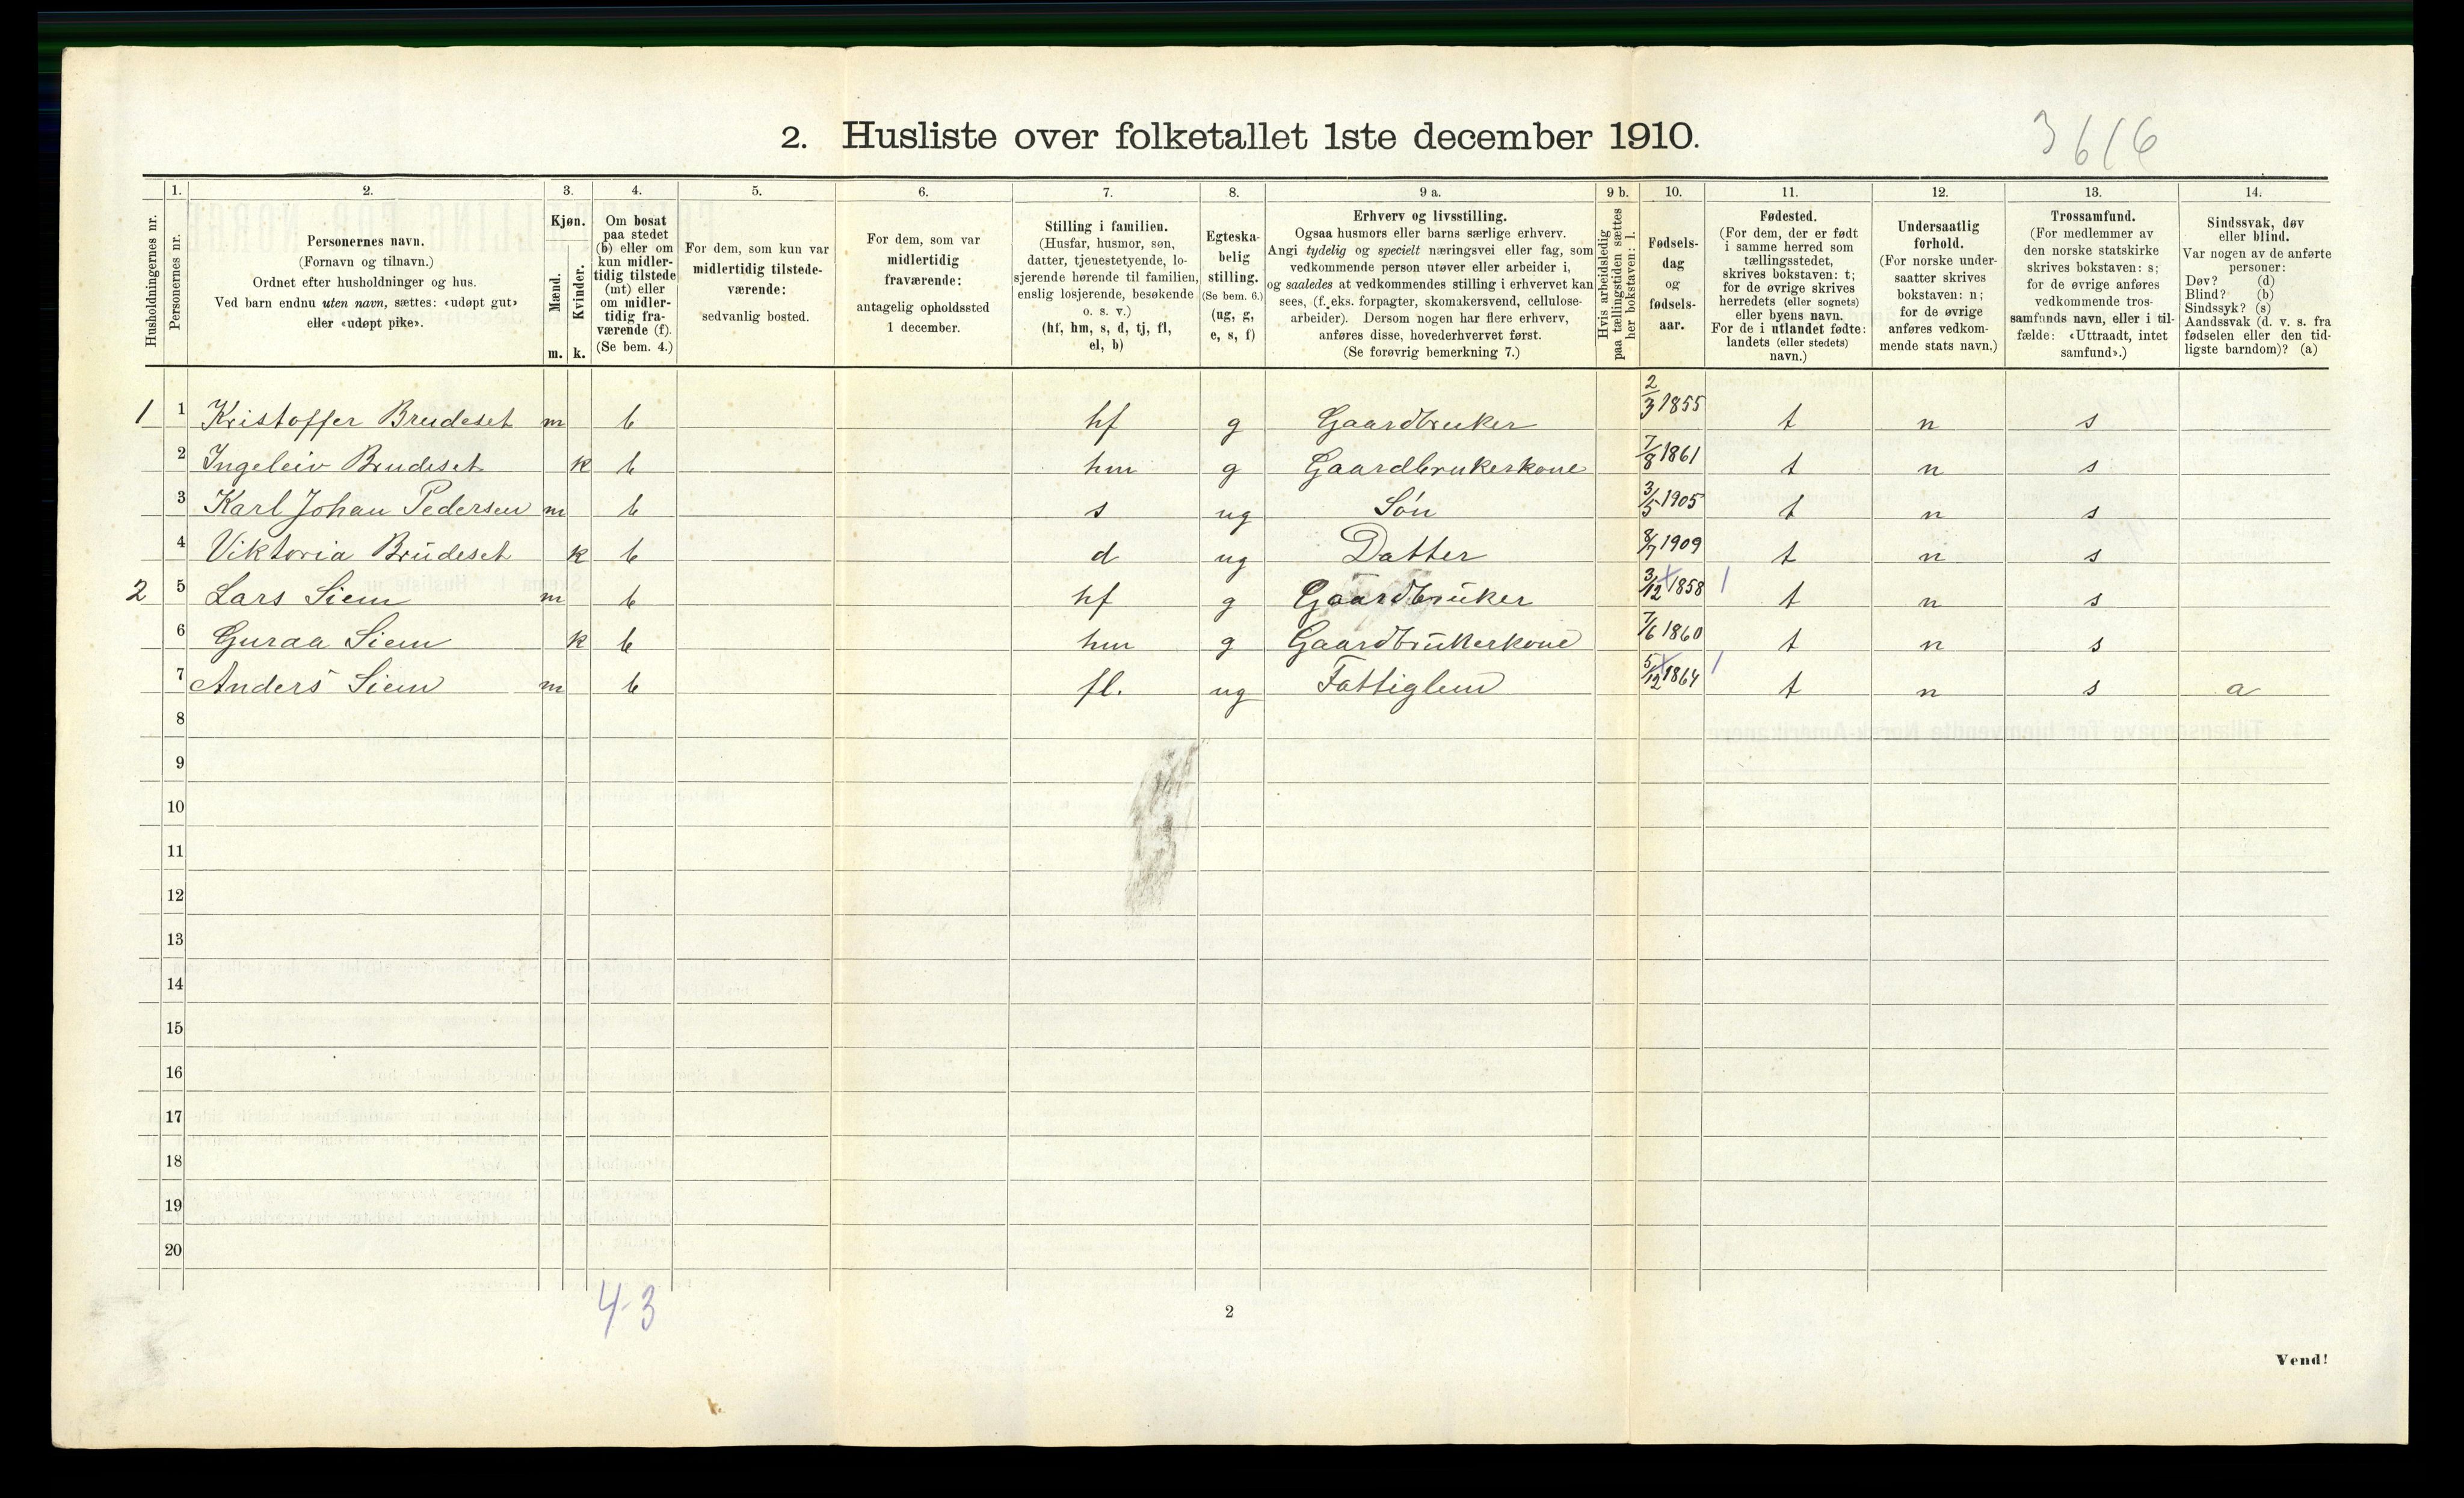 2. Husliste over folketallet 1ste december 1910.
3616
1. 2. 3. 4. 5. 6. 7. 8. 9 a. 9 b. 10. 11. 12. 13. 14.
Husholdningernes nr.
Personernes nr.
Personernes navn.
(Fornavn og tilnavn.)
Ordnet efter husholdninger og hus.
Ved barn endnu uten navn, sættes: «udøpt gut»
eller «udøpt pike».
Kjøn.
Mænd.
Kvinder.
m. k.
Om bosat
paa stedet
(b) eller om
kun midler-
tidig tilstede
(mt) eller
om midler-
tidig fra-
værende (f).
(Se bem. 4.)
For dem, som kun var
midlertidig tilstede-
værende:
sedvanlig bosted.
For dem, som var
midlertidig
fraværende:
antagelig opholdssted
1 december.
Stilling i familien.
(Husfar, husmor, søn,
datter, tjenestetyende, lo-
sjerende hørende til familien,
enslig losjerende, besøkende
o. s. v.)
(hf, hm, s, d, tj, fl,
el, b)
Egteska-
belig
stilling.
(Se bem. 6.)
(ug, g,
e, s, f)
Erhverv og livsstilling.
Ogsaa husmors eller barns særlige erhverv.
Angi tydelig og specielt næringsvei eller fag, som
vedkommende person utøver eller arbeider i,
og saaledes at vedkommendes stilling i erhvervet kan
sees, (f. eks. forpagter, skomakersvend, cellulose-
arbeider). Dersom nogen har flere erhverv,
anføres disse, hovederhvervet først.
(Se forøvrig bemerkning 7.)
Hvis arbeidsledig
paa tællingstiden sættes
her bokstaven: l.
Fødsels-
dag
og
fødsels-
aar.
Fødested.
(For dem, der er født
i samme herred som
tællingsstedet,
skrives bokstaven: t;
for de øvrige skrives
herredets (eller sognets)
eller byens navn.
For de i utlandet fødte:
landets (eller stedets)
navn.)
Undersaatlig
forhold.
(For norske under-
saatter skrives
bokstaven: n;
for de øvrige
anføres vedkom-
mende stats navn.)
Trossamfund.
(For medlemmer av
den norske statskirke
skrives bokstaven: s;
for de øvrige anføres
vedkommende tros-
samfunds navn, eller i til-
fælde: «Uttraadt, intet
samfund».)
Sindssvak, døv
eller blind.
Var nogen av de anførte
personer:
Døv? (d)
Blind? (b)
Sindssyk? (s)
Aandssvak (d. v. s. fra
fødselen eller den tid-
ligste barndom)? (a)
1 1 Kristoffer Brudeset m b hf g Gaardbruker 2/3 1855 t n s
2 Ingeleiv Brudeset k b hm g Gaardbrukerkone 7/8 1861 t n s
3 Karl Johan Pedersen m b s ug Søn 3/5 1905 t n s
4 Viktoria Brudeset k b d ug Datter 8/7 1909 t n s
2 5 Lars Siem m b hf g Gaardbruker 3/12 1858 t n s
6 Guraa Siem k b hm g Gaardbrukerkone 7/6 1860 t n s
7 Anders Siem m b fl. ug Fattiglem 5/12 1864 t n s a
8
9
10
11
12
13
14
15
16
17
18
19
20
4-3
2
Vend!